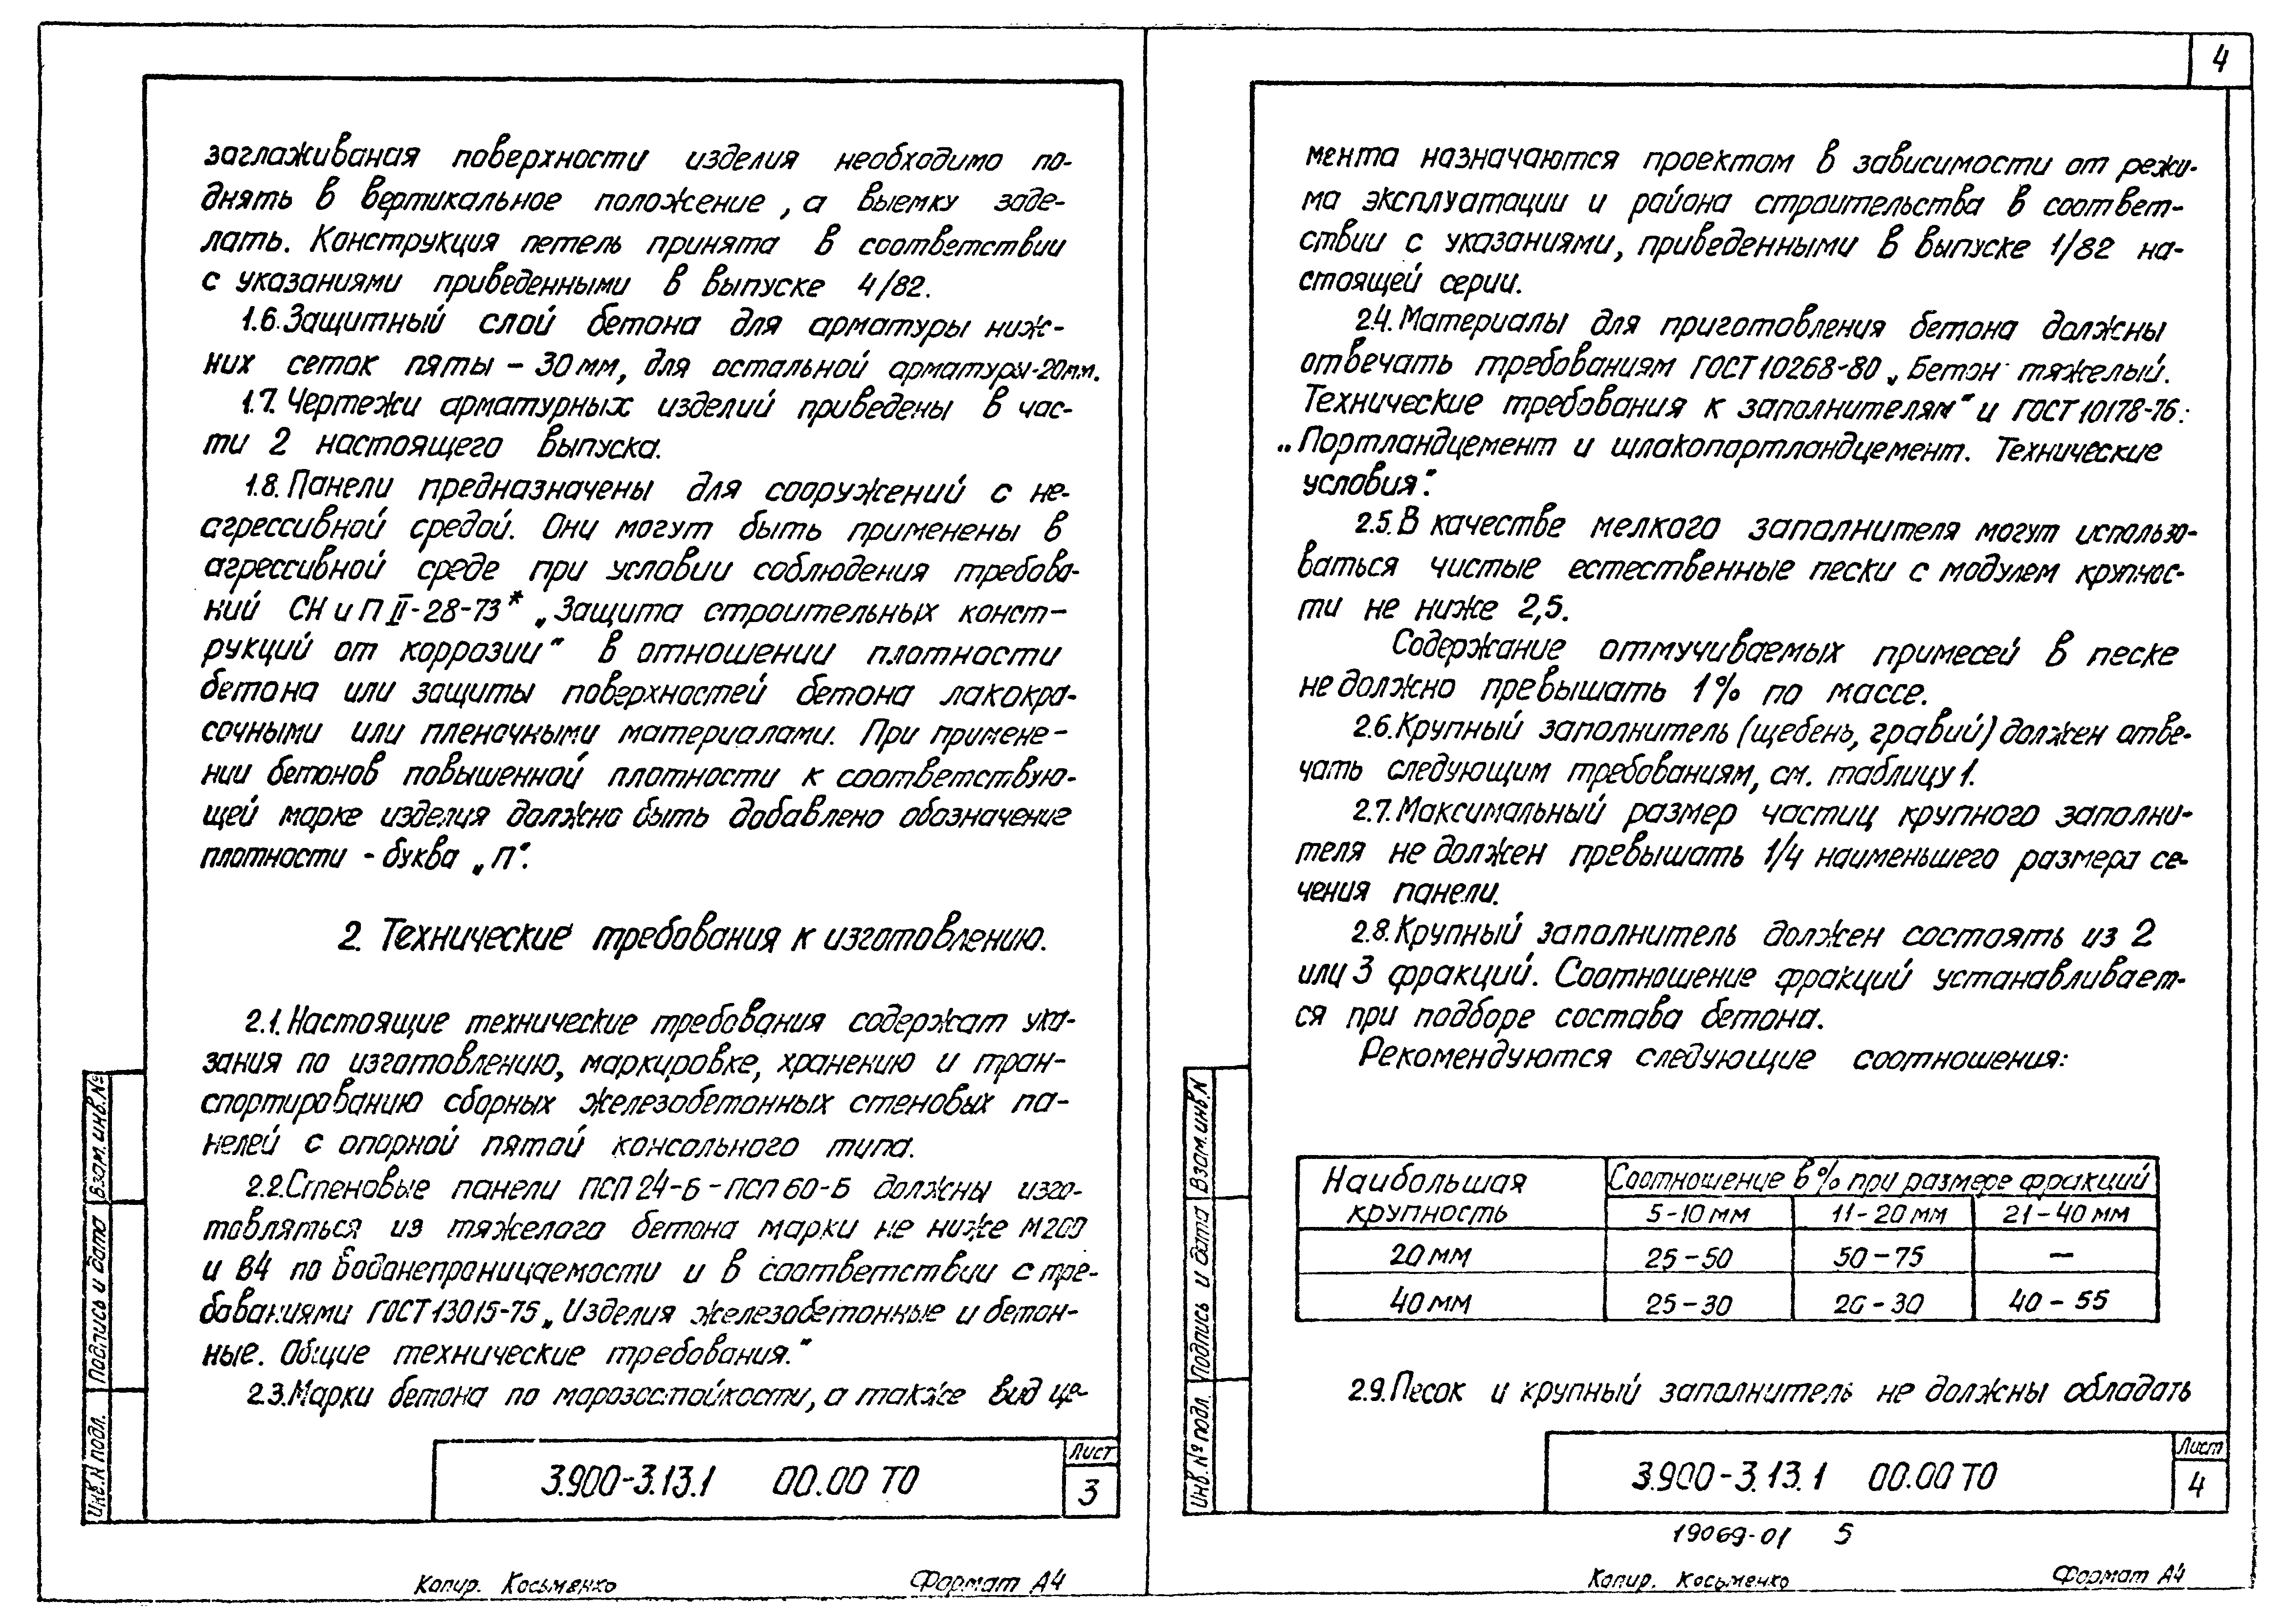 заглаживаная поверхности изделия необходимо по-
днять в вертикальное положение, а выемку заде-
лать. Конструкция петель принята в соответствии
с указаниями приведенными в выпуске 4/82.
1.6. Защитный слой бетона для арматуры ниж-
них сеток пяты - 30 мм, для остальной арматуры-20мм.
1.7. Чертежи арматурных изделий приведены в час-
ти 2 настоящего выпуска.
1.8. Панели предназначены для сооружений с не-
агрессивной средой. Они могут быть применены в
агрессивной среде при условии соблюдения требова-
ний СН и П II-28-73* „Защита строительных конст-
рукций от коррозии" в отношении плотности
бетона или защиты поверхностей бетона лакокра-
сочными или пленочными материалами. При примене-
нии бетонов повышенной плотности к соответствую-
щей марке изделия должно быть добавлено обозначение
плотности - буква „П".
2. Технические требования к изготовлению.
2.1. Настоящие технические требования содержат ука-
зания по изготовлению, маркировке, хранению и тран-
спортированию сборных железобетонных стеновых па-
нелей с опорной пятой консольного типа.
2.2. Стеновые панели ПСП 24-Б - ПСП 60-Б должны изго-
товляться из тяжелого бетона марки не ниже М200
и В4 по водонепроницаемости и в соответствии с тре-
бованиями ГОСТ 13015-75 „Изделия железобетонные и бетон-
ные. Общие технические требования."
2.3. Марки бетона по морозостойкости, а также вид це-
3.900-3.13.1 00.00 ТО
Лист
3
Взам. инв.№
Подпись и дата
Инв.N подл.
Копир. Косьменко
Формат А4
4
мента назначаются проектом в зависимости от режи-
ма эксплуатации и района строительства в соответ-
ствии с указаниями, приведенными в выпуске 1/82 на-
стоящей серии.
2.4. Материалы для приготовления бетона должны
отвечать требованиям ГОСТ 10268-80 „Бетон тяжелый.
Технические требования к заполнителям" и ГОСТ 10178-76:
„Портландцемент и шлакопортландцемент. Технические
условия".
2.5. В качестве мелкого заполнителя могут использо-
ваться чистые естественные пески с модулем крупнос-
ти не ниже 2,5.
Содержание отмучиваемых примесей в песке
не должно превышать 1% по массе.
2.6. Крупный заполнитель (щебень, гравий) должен отве-
чать следующим требованиям, см. таблицу 1.
2.7. Максимальный размер частиц крупного заполни-
теля не должен превышать 1/4 наименьшего размера се-
чения панели.
2.8. Крупный заполнитель должен состоять из 2
или 3 фракций. Соотношение фракций устанавливает-
ся при подборе состава бетона.
Рекомендуются следующие соотношения:
Наибольшая крупность
Соотношение в % при размере фракций
5-10 мм 11-20 мм 21-40 мм
20 мм 25-50 50-75 —
40 мм 25-30 20-30 40-55
2.9. Песок и крупный заполнитель не должны обладать
3.900-3.13.1 00.00 ТО
Лист
4
Взам. инв.N
Подпись и дата
Инв.№ подл.
19069-01 5
Копир. Косьменко
Формат А4